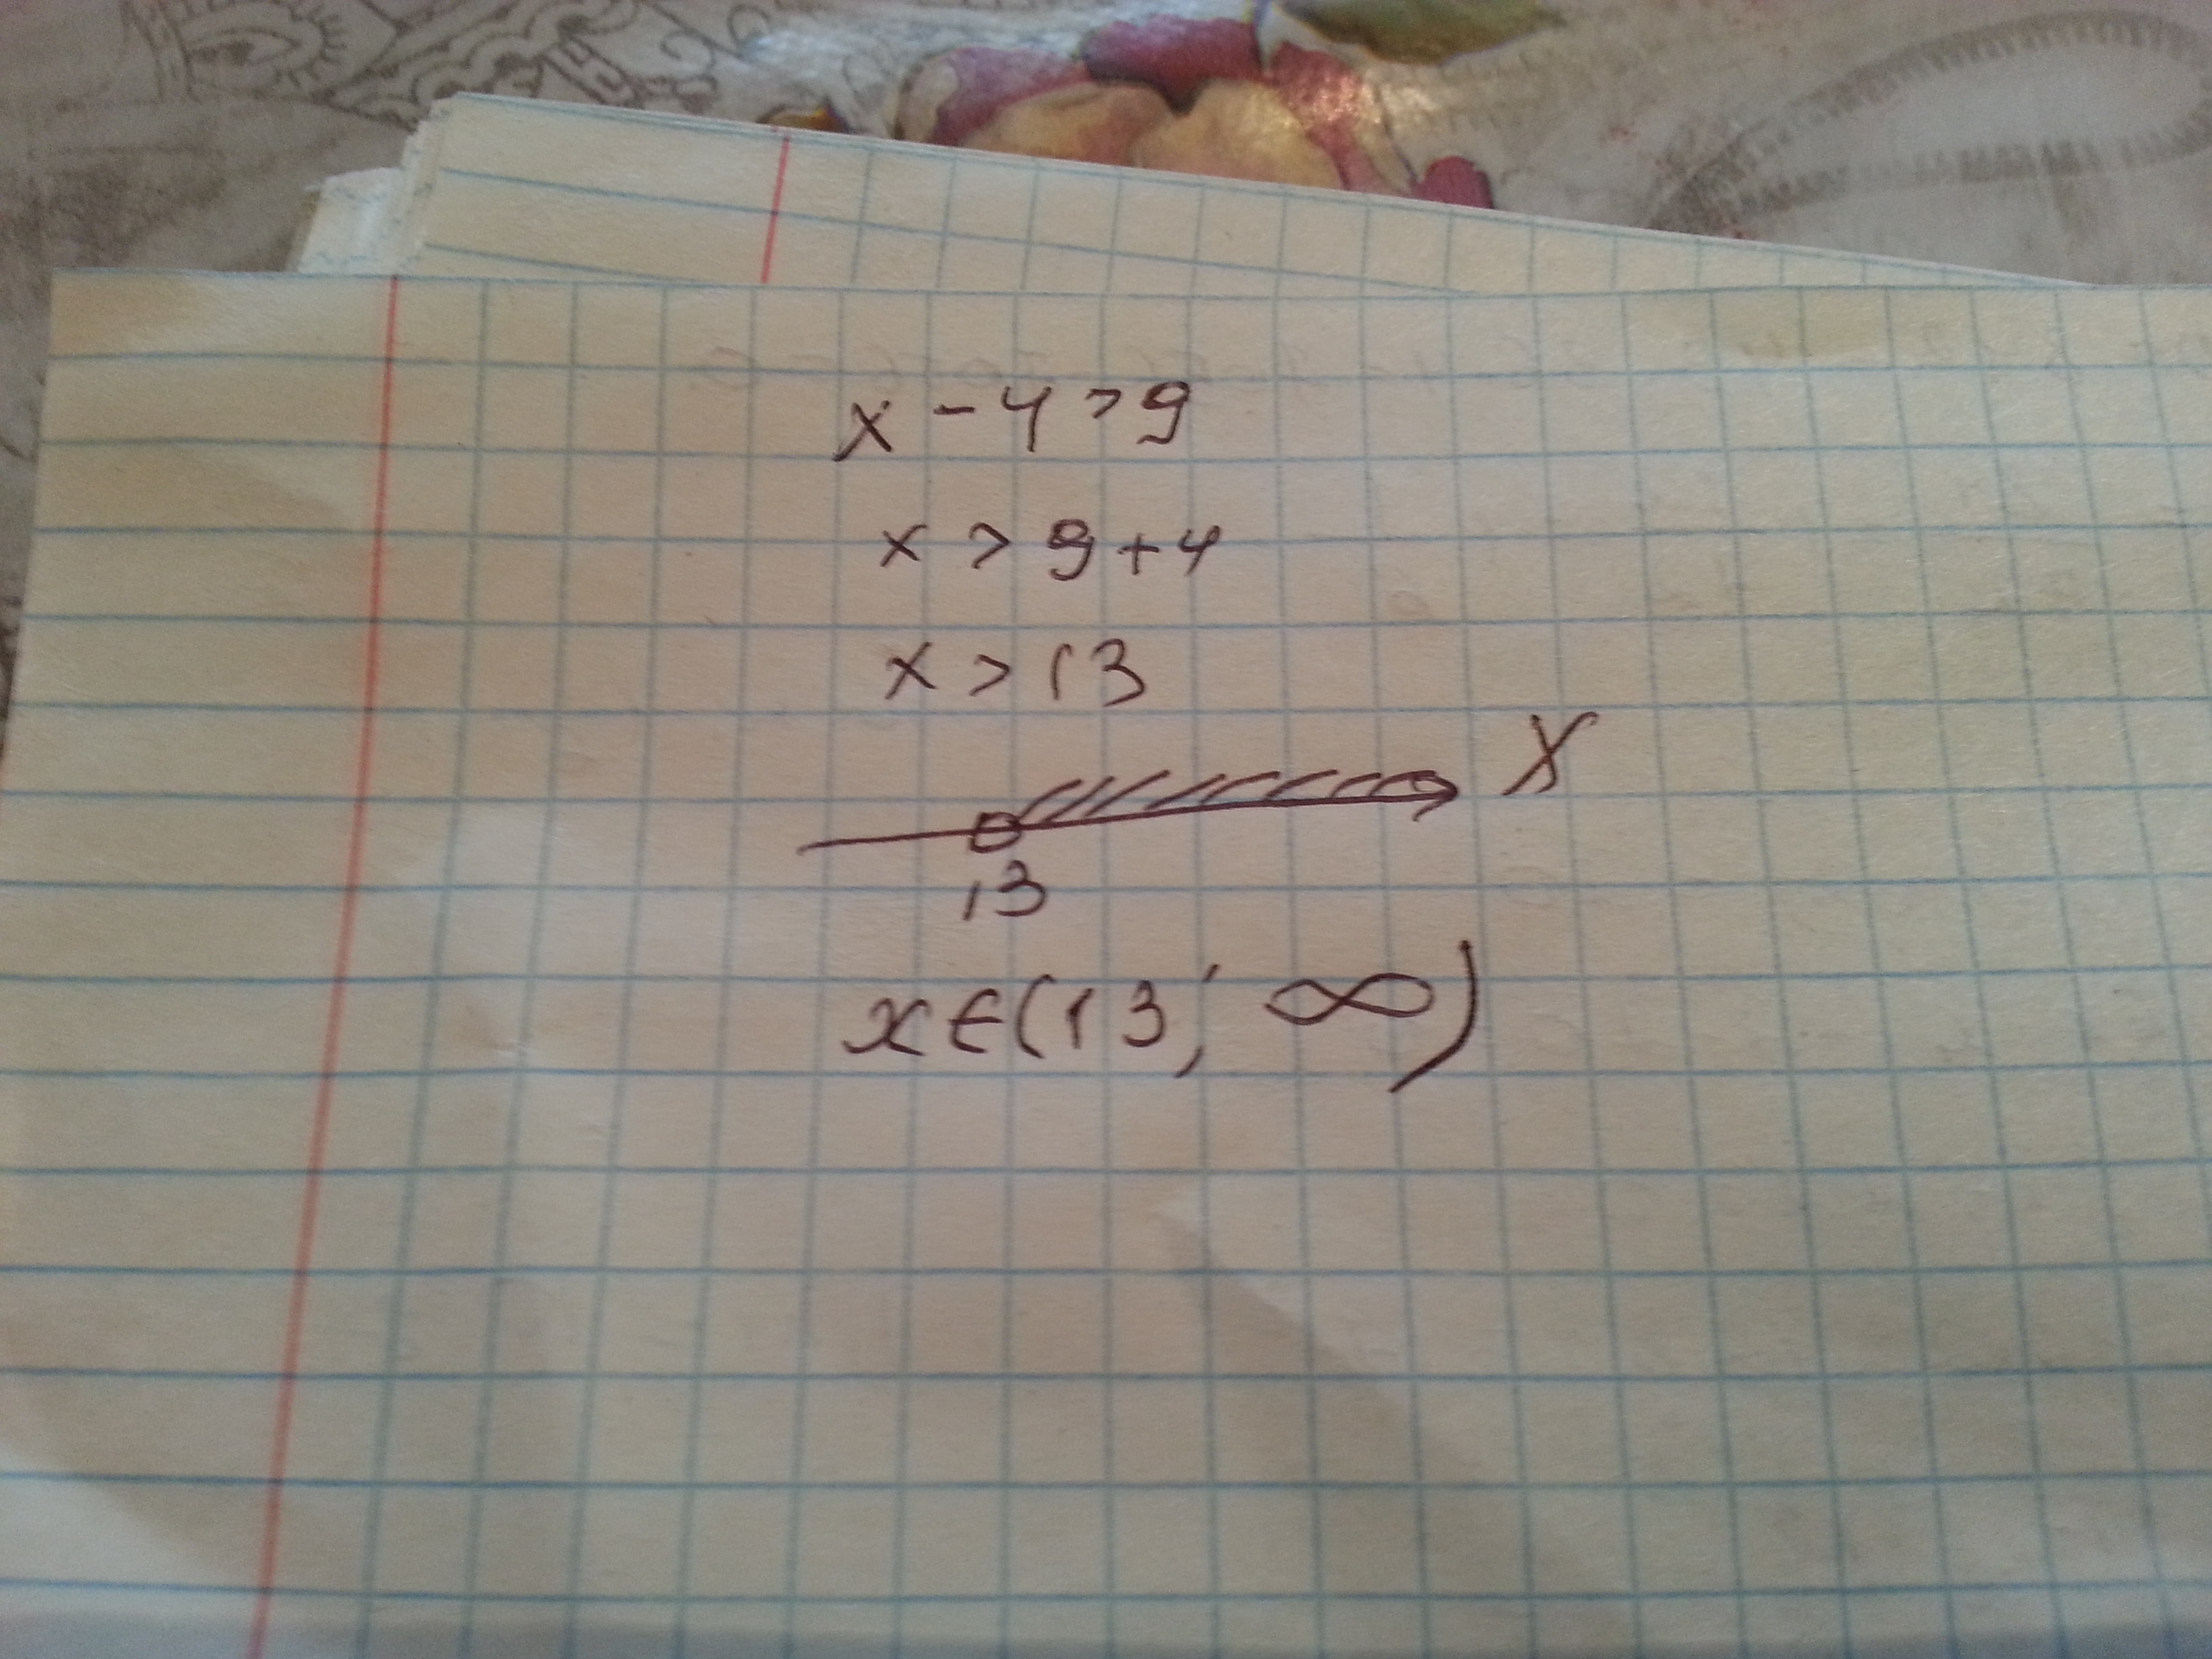 x - 4 > 9
x > 9 + 4
x > 13
X
13
x ∈ (13; ∞)